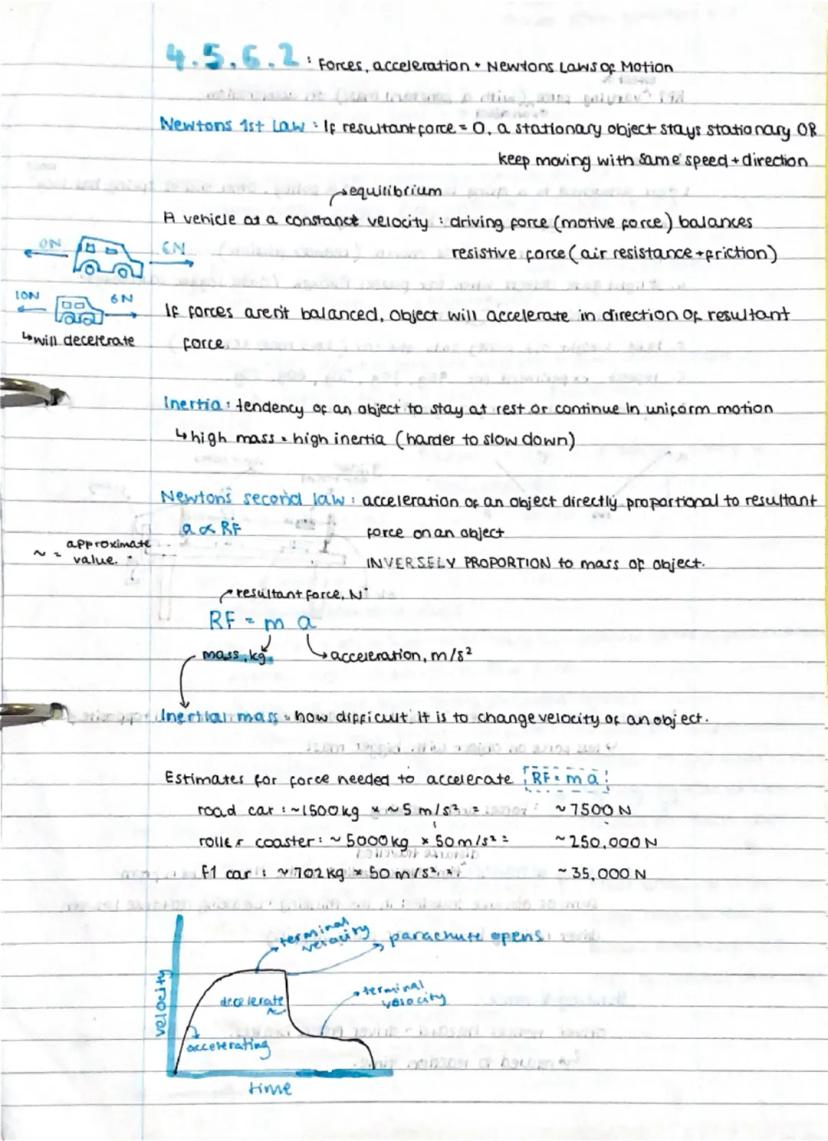 4.5.6.2 : Forces, acceleration + Newtons Laws of Motion
Newtons 1st Law : If resultant force = 0, a stationary object stays stationary OR
keep moving with same speed + direction
equilibrium
A vehicle at a constant velocity : driving force (motive force) balances
resistive force (air resistance + friction)
6N
10N 6N
If forces aren't balanced, object will accelerate in direction of resultant
↳ will decelerate
force.
Inertia : tendency of an object to stay at rest or continue in uniform motion
↳ high mass = high inertia (harder to slow down)
Newton's second law : acceleration of an object directly proportional to resultant
a ∝ RF force on an object
~ = approximate value.
INVERSELY PROPORTION to mass of object.
resultant force, N
RF = m a
mass, kg acceleration, m/s²
Inertial mass = how difficult it is to change velocity of an object.
Estimates for force needed to accelerate RF = m a
road car : ~1500kg × ~5 m/s² = ~7500 N
roller coaster : ~5000kg × 50 m/s² = ~250,000 N
F1 car : ~702kg × 50 m/s² = ~35,000 N
terminal velocity
parachute opens
decelerate
terminal velocity
velocity
accelerating
time